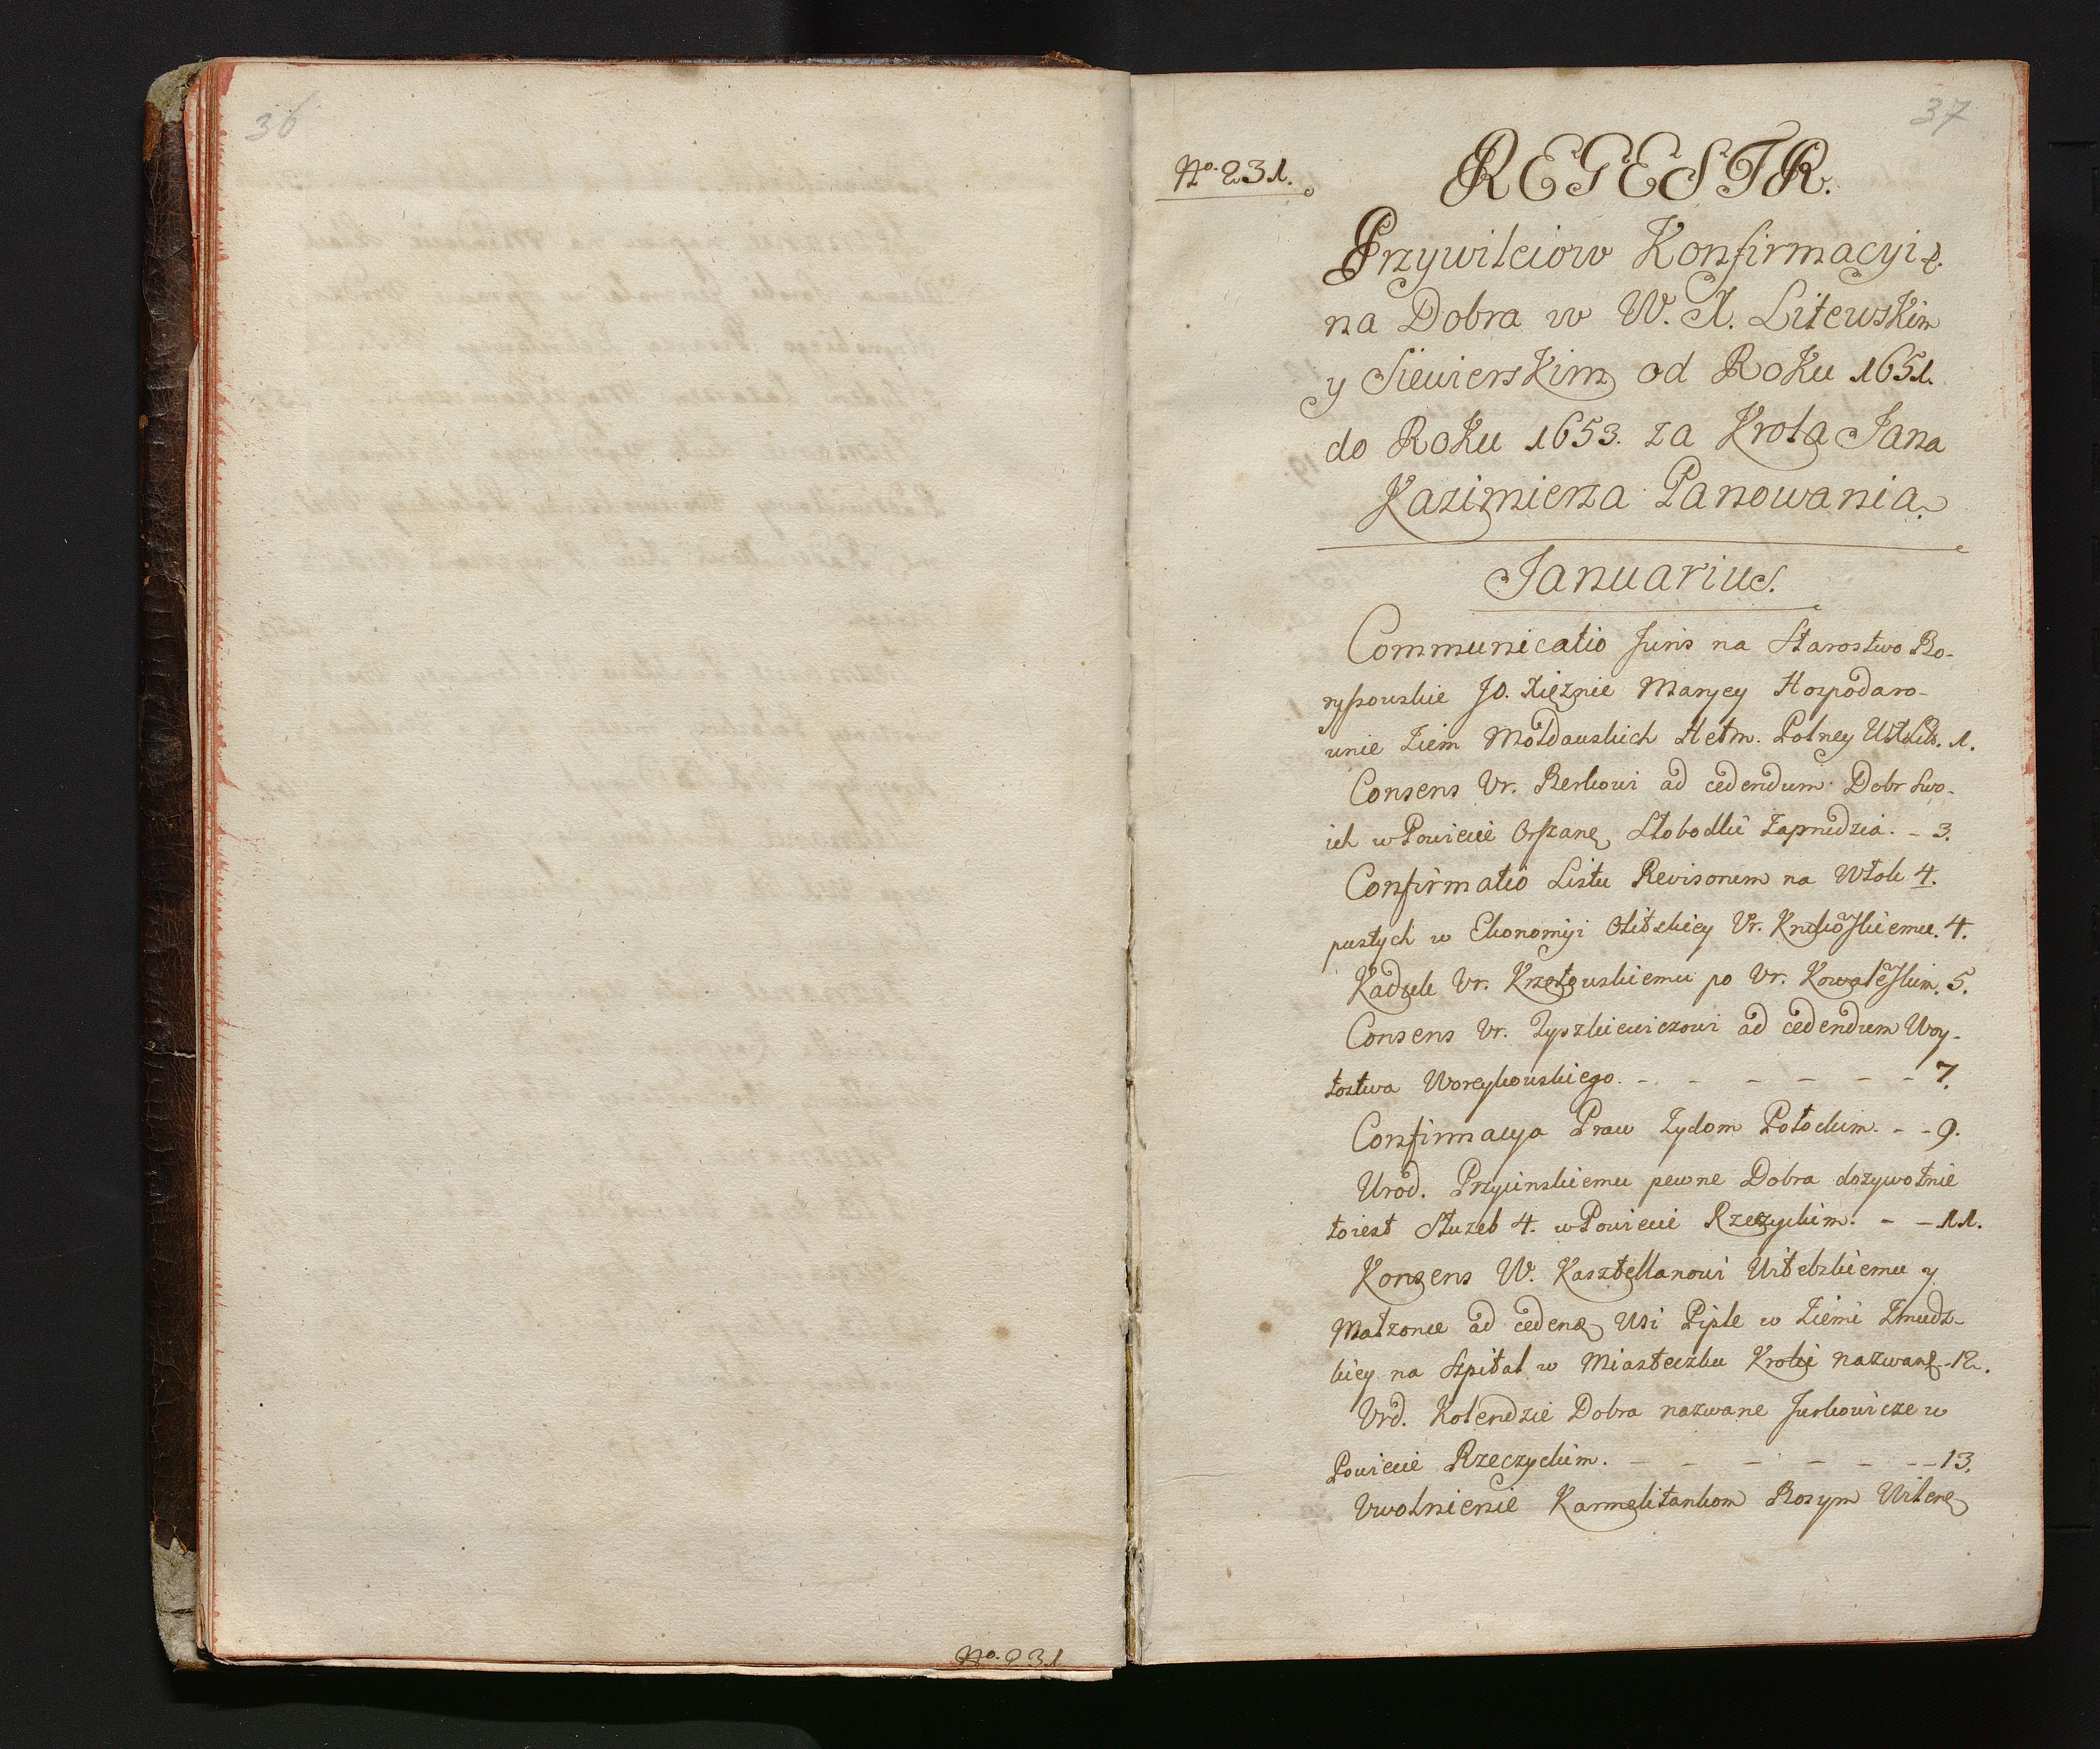 36
No. 231
37
No. 231.
REGESTR.
Przywileiow Konfirmacyi &.
na Dobra w W. X. Litewskim
y Siewierskim od Roku 1651.
do Roku 1653. za Krola Jana
Kazimierza Panowania.
Januarius.
Communicatio Juris na Starostwo Bo-
ryssowskie JO. Xięznie Maryey Hospodaro-
wnie Ziem Mołdawskich Hetm. Polney 1.
Consens Ur. Berkowi ad cedendum Dobr swo-
ich w Powiecie Orszanę Słobodki Zaprudzia. - 3.
Confirmatio Listu Revisorum na Włok 4.
pustych w Ekonomiji Olitskiey Ur. 4.
Kaduk Ur. po Ur. 5.
Consens Ur. Tyszkiewiczowi ad cedendum Woy-
tostwa - - - - - - 7.
Confirmacya Praw Zydom Połockim. - - 9.
Urod. pewne Dobra dozywotnie
toiest Słuzeb 4. w Powiecie Rzeczyckim. - - 11.
Konsens W. Kasztellanowi Witebskiemu y
Małzonce ad cedenę Wsi Piple w Ziemi Zmudz-
kiey na Szpital w Miasteczku Kroki nazwanę - 12.
Urd. Kolendzie Dobra nazwane Jurkowicze w
Powiecie Rzeczyckim. - - - - - - - 13.
Uwolnienie Karmelitankom Bosym Wilenę